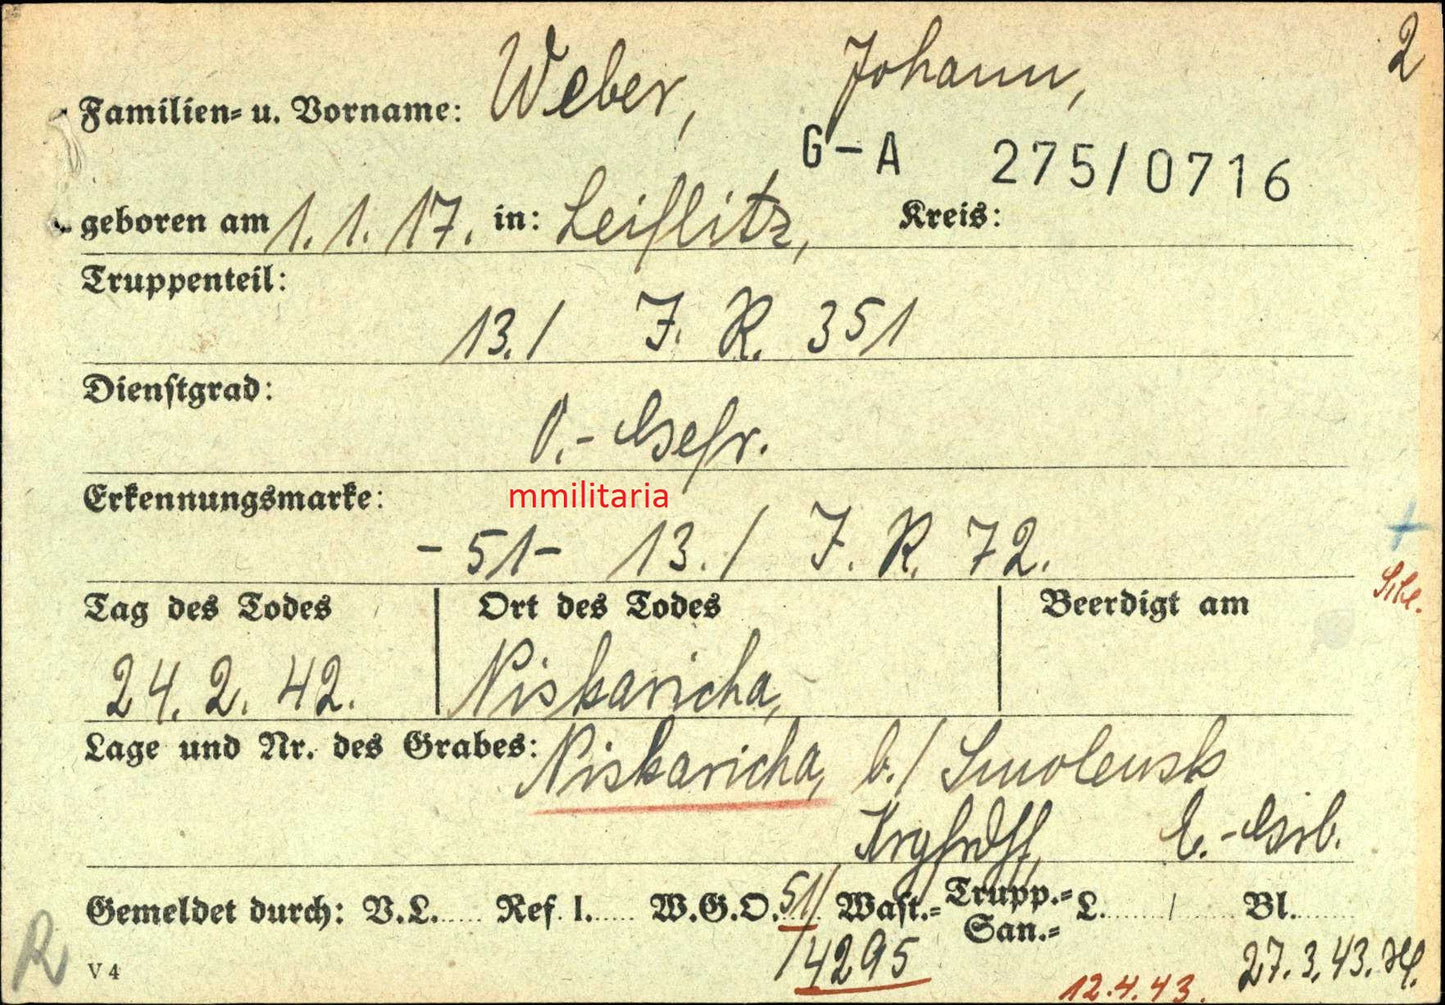 2
Familien- u. Vorname: Weber, Johann,
G-A 275/0716
geboren am 1.1.17. in: Leiflitz, Kreis:
Truppenteil:
13./ J. R. 351
Dienstgrad:
O.-Gefr.
Erkennungsmarke:
mmilitaria
-51- 13./ J. R. 72.
Tag des Todes Ort des Todes Beerdigt am
24.2.42. Niskaricha,
Lage und Nr. des Grabes: Niskaricha, b./ Smolensk
E.-Grb.
Gemeldet durch: V.L. Ref. I. W.G.O. 51/ Wast.- Trupp.- L. / Bl.
San.-
14295
R V 4 12.4.43. 27.3.43.